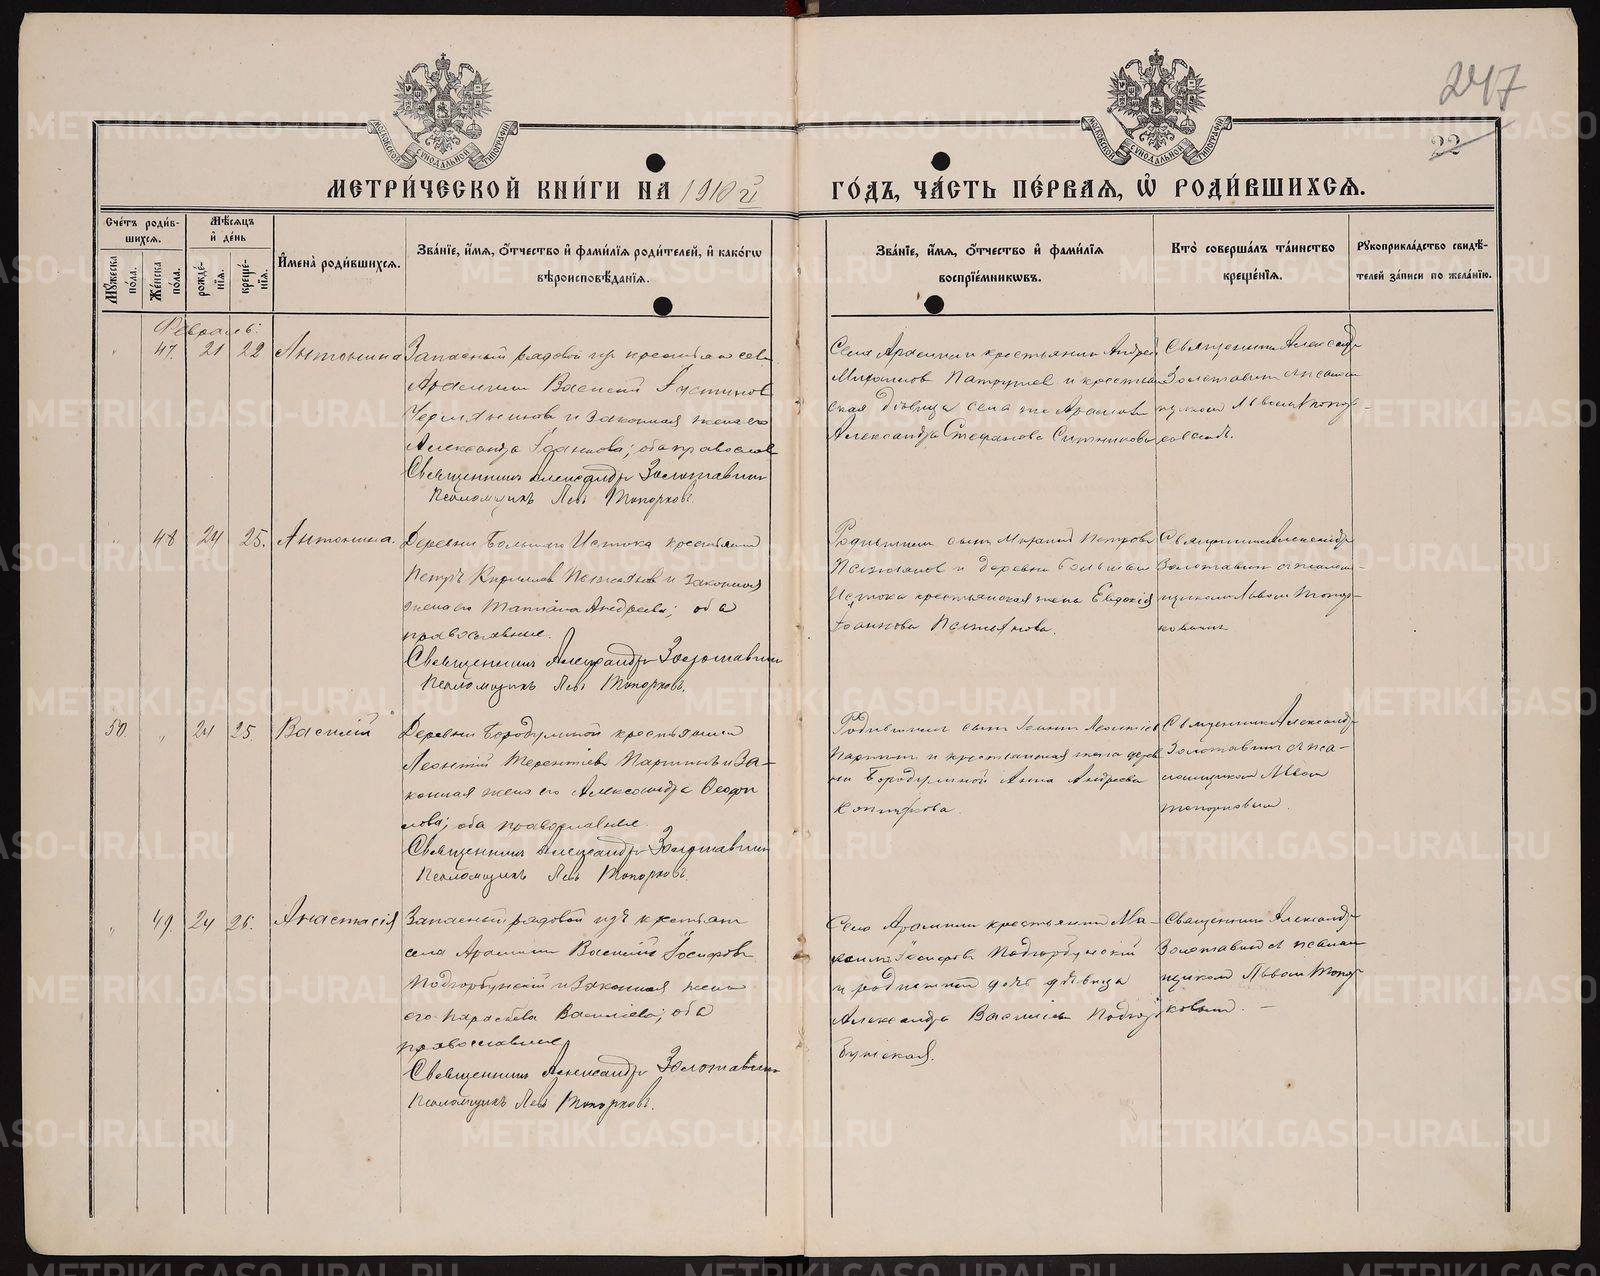 247
22
МОСКОВСКОЙ СѴНОДАЛЬНОЙ ТИПОГРАФІИ
МОСКОВСКОЙ СѴНОДАЛЬНОЙ ТИПОГРАФІИ
МЕТРИ́ЧЕСКОЙ КНИ́ГИ НА 1910й ГО́ДЪ, ЧА́СТЬ ПЕ́РВАЯ, Ѡ҆ РОДИ́ВШИХСЯ.
Сче́тъ роди́в-
шихся.
Мѣ́сяцъ
и҆ де́нь
Мꙋ́жеска по́ла.
Же́нска по́ла.
рожде́-
нїѧ.
креще́-
нїѧ.
И҆мена̀ роди́вшихся.
Зва́нїе, и҆́мѧ, ѻ҆́тчество и҆ фами́лїѧ роди́телей, и҆ како́гѡ
вѣроисповѣ́данїѧ.
Зва́нїе, и҆́мѧ, ѻ҆́тчество и҆ фами́лїѧ
воспрїе́мникѡвъ.
Кто̀ соверша́лъ та́инство
креще́нїѧ.
Рꙋкоприкла́дство свидѣ́-
телей за́писи по жела́нїю.
Февраль:
" 47. 21 22 Антонина
Запасный рядовой из крестьян села
Арамили Василий Іустинов
Чермянинов и законная жена его
Александра Іоаннова; оба православ.
Священник Александр Золотавин
Псаломщикъ Левъ Топорковъ.
Села Арамили крестьянин Андрей
Михайлов Патрушев и крестьян-
ская дѣвица села же Арамили
Александра Стефанова Ситникова
Священник Александр
Золотавин с псалом-
щиком Львом Топор-
ковымъ.
" 48 24 25. Антонина.
Деревни Большого Истока крестьянин
Петръ Кирилов и законная
жена его Татіана Андреева; оба
православные.
Священник Александр Золотавин
Псаломщикъ Левъ Топорковъ.
Родившей сын Петров
и деревни Большого
Истока крестьянская жена Евдокія
Іоаннова
Священник Александр
Золотавин с псалом-
щиком Львом Топор-
ковым
50. " 24 25 Василій
Деревни Бородулиной крестьянин
Леонтій Терентіев Паршин и за-
конная жена его Александра Феофи
лова; оба православные.
Священник Александр Золотавин
Псаломщикъ Левъ Топорковъ.
сын Іоанн Леонтіев
Паршин и крестьянская жена дерев
ни Бородулиной Анна Андреева
Священник Александр
Золотавин с пса-
ломщиком Львом
Топорковым.
" 49. 24 25. Анастасія
Запасный рядовой изъ крестьян
села Арамили Василій Іосифов
Подгорбунскій и законная жена
его Параскева Василіева; оба
православные.
Священник Александр Золотавин
Псаломщикъ Левъ Топорковъ.
Села Арамили крестьянин Ма-
ксим Іосифов Подгорбунскій
и дочь дѣвица
Александра Василіева Подгор
бунская.
Священник Александр
Золотавин с псалом
щиком Львом Топор
ковым. –
METRIKI.GASO-URAL.RU